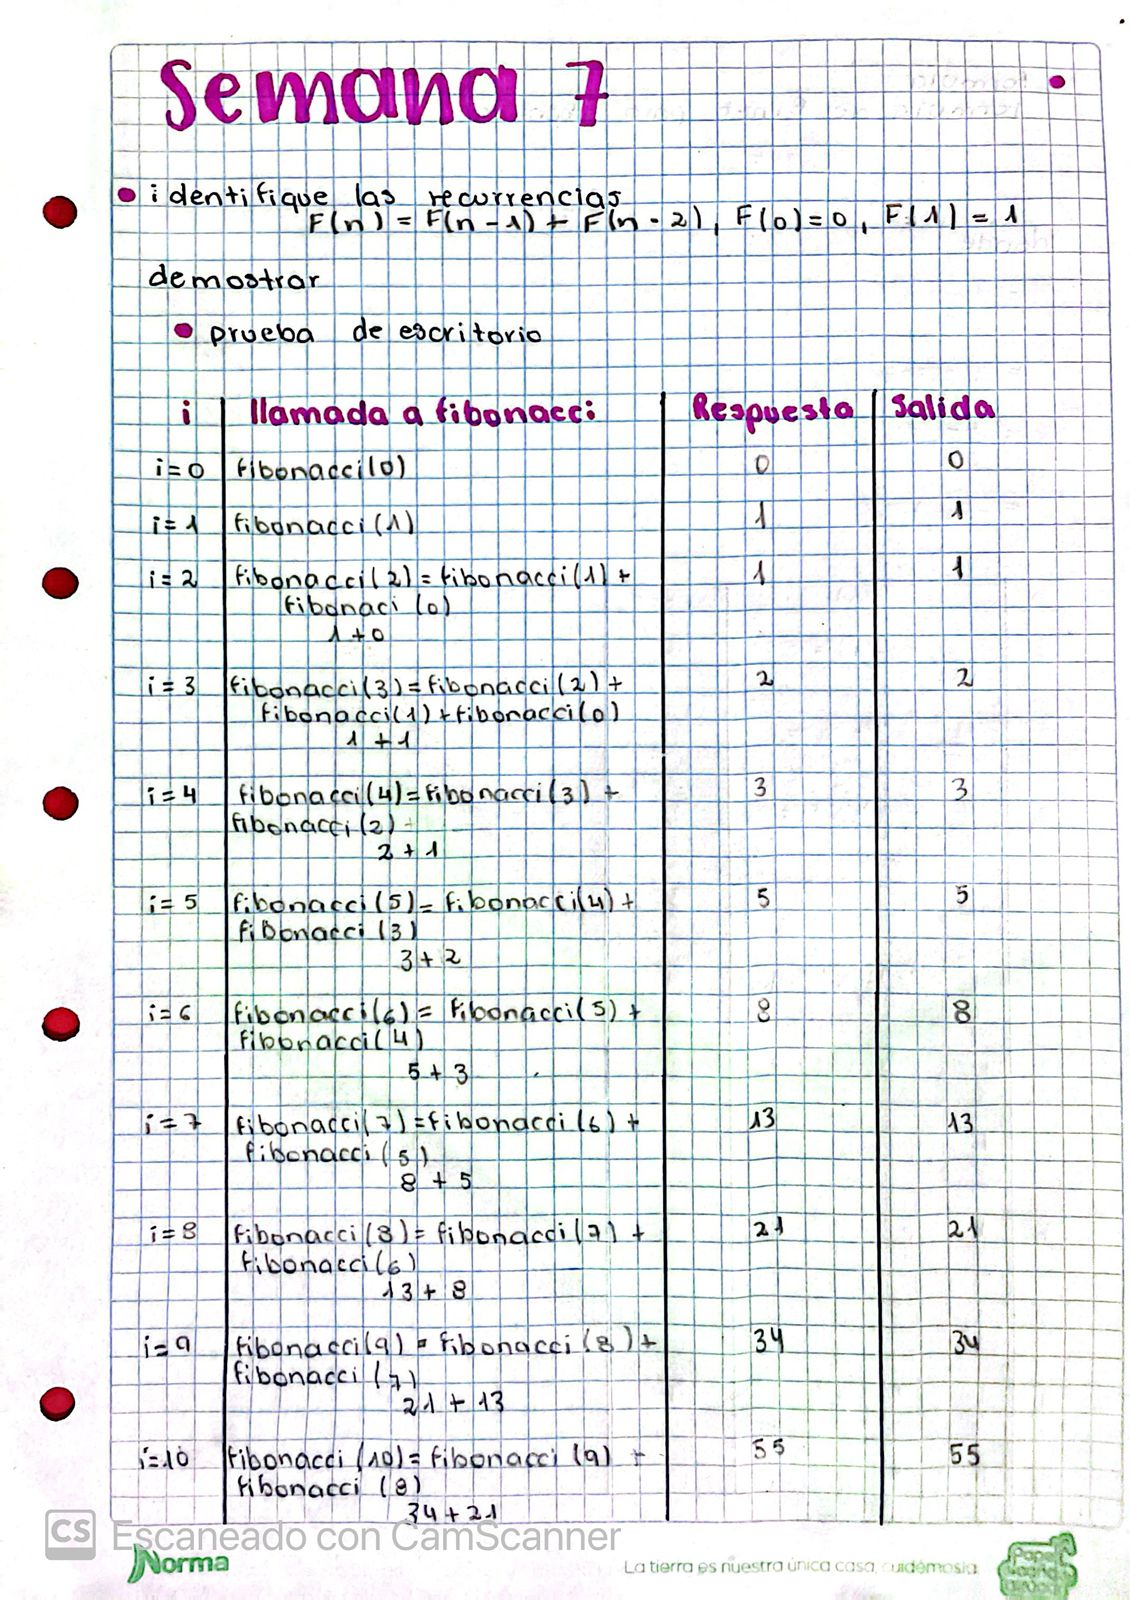 Semana 7
identifique las recurrencias
F(n) = F(n-1) + F(n-2), F(0)=0, F(1)=1
demostrar
prueba de escritorio
i llamada a fibonacci Respuesta Salida
i=0 fibonacci(0) 0 0
i=1 fibonacci(1) 1 1
i=2 fibonacci(2)=fibonacci(1)+ 1 1
fibonaci (0)
1+0
i=3 fibonacci(3)=fibonacci(2)+ 2 2
fibonacci(1)+fibonacci(0)
1+1
i=4 fibonacci(4)=fibonacci(3) + 3 3
fibonacci(2)
2+1
i=5 fibonacci(5)=fibonacci(4)+ 5 5
fibonacci(3)
3+2
i=6 fibonacci(6)= fibonacci(5)+ 8 8
fibonacci(4)
5+3
i=7 fibonacci(7)=fibonacci(6)+ 13 13
fibonacci(5)
8+5
i=8 fibonacci(8)=fibonacci(7)+ 21 21
fibonacci(6)
13+8
i=9 fibonacci(9)=fibonacci(8)+ 34 34
fibonacci(7)
21+13
i=10 fibonacci(10)=fibonacci(9) + 55 55
fibonacci (8)
34+21
CS Escaneado con CamScanner
Norma
La tierra es nuestra única casa, cuidémosla